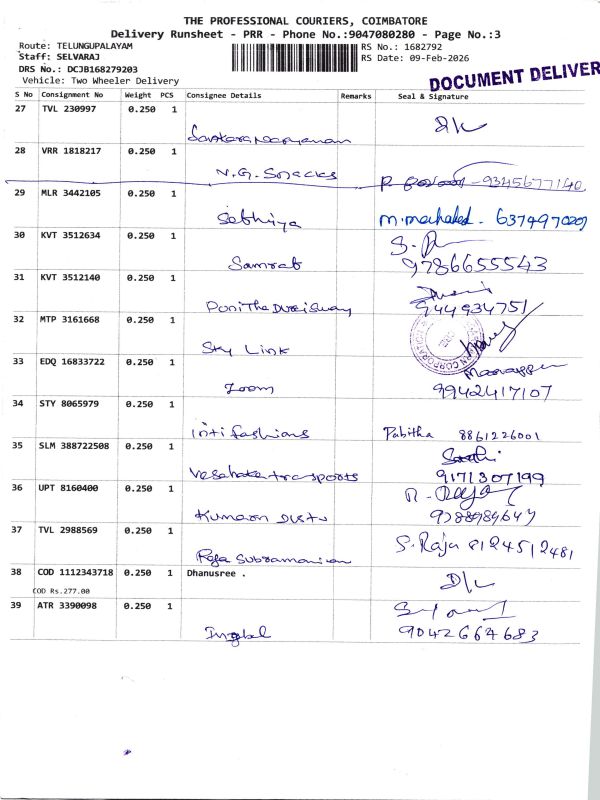 THE PROFESSIONAL COURIERS, COIMBATORE
Delivery Runsheet - PRR - Phone No.:9047080280 - Page No.:3
Route: TELUNGUPALAYAM
RS No.: 1682792
Staff: SELVARAJ
RS Date: 09-Feb-2026
DRS No.: DCJB168279203
Vehicle: Two Wheeler Delivery
DOCUMENT DELIVER
S No Consignment No Weight PCS Consignee Details Remarks Seal & Signature
27 TVL 230997 0.250 1
D/L
Sankaranarayanan
28 VRR 1818217 0.250 1
N.G. Snacks
9345677140
29 MLR 3442105 0.250 1
Sathiya
6374970207
30 KVT 3512634 0.250 1
Samrat
9786655543
31 KVT 3512140 0.250 1
944934751
32 MTP 3161668 0.250 1
Sky Link
33 EDQ 16833722 0.250 1
Zoom
9942417107
34 STY 8065979 0.250 1
inti fashions Pabitha 8861226001
35 SLM 388722508 0.250 1
9171307199
36 UPT 8160400 0.250 1
37 TVL 2988569 0.250 1
S. Raja 8124512481
Raja Subramanian
38 COD 1112343718 0.250 1 Dhanusree .
D/L
COD Rs.277.00
39 ATR 3390098 0.250 1
9042664683